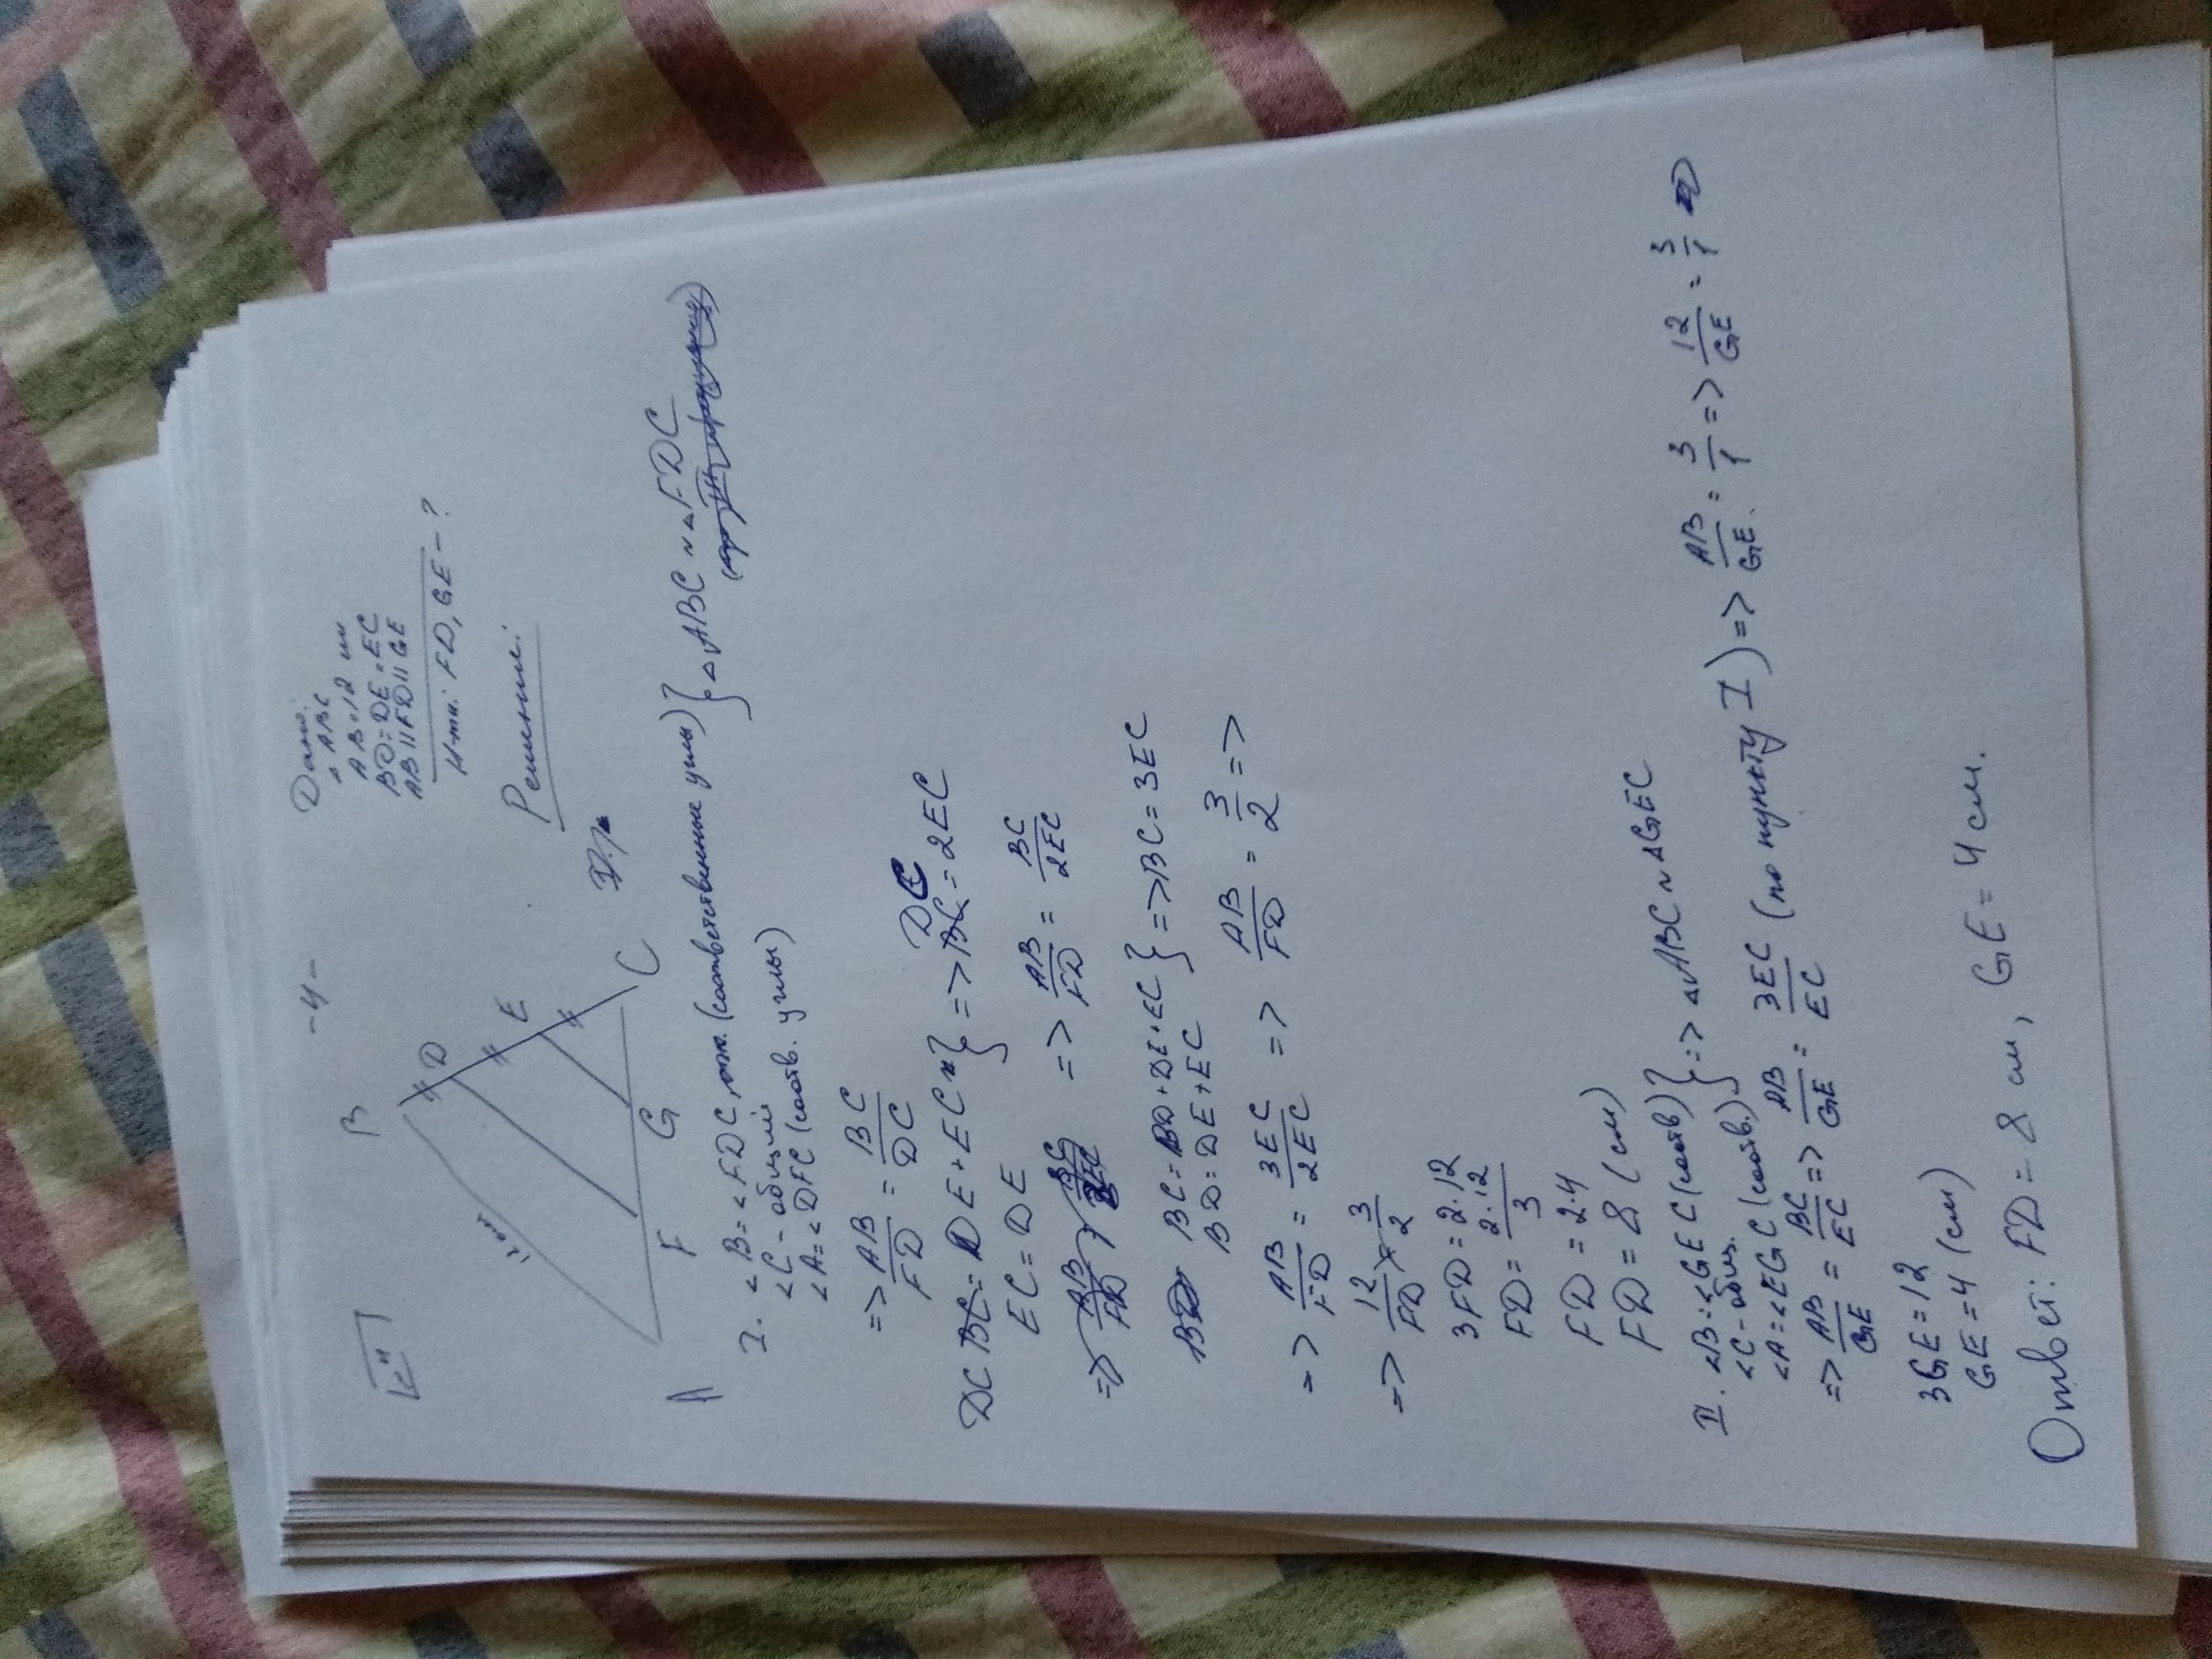 -4-
№4
Дано:
△ABC
AB=12 см
BD=DE=EC
AB||FD||GE
Н-ти: FD, GE-?
B
D
E
C
G
F
A
12см
Решение:
I. ∠B=∠FDC (соответственные углы)
∠C-общий
∠A=∠DFC (соотв. углы)
} △ABC ~ △FDC
=> AB/FD = BC/DC
DC = DE+EC
EC=DE
} => DC = 2EC
=> AB/FD = BC/2EC
BC=BD+DE+EC
BD=DE+EC
} => BC=3EC
=> AB/FD = 3EC/2EC => AB/FD = 3/2 =>
=> 12/FD = 3/2
3FD=2·12
FD= 2·12/3
FD=2·4
FD=8 (см)
II. ∠B=∠GEC (соотв)
∠C-общ.
∠A=∠EGC (соотв.)
} => △ABC ~ △GEC
=> AB/GE = BC/EC => AB/GE = 3EC/EC (по пункту I) => AB/GE = 3/1 => 12/GE = 3/1
3GE=12
GE=4 (см)
Ответ: FD=8 см, GE=4 см.